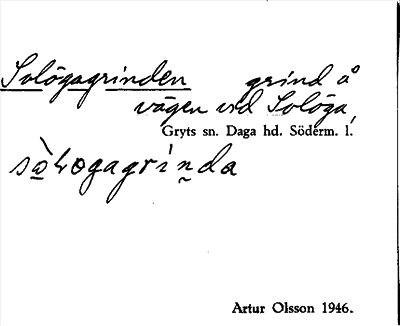 Solögagrinden grind å
vägen vid Solöga,
Gryts sn. Daga hd. Söderm. l.
Artur Olsson 1946.